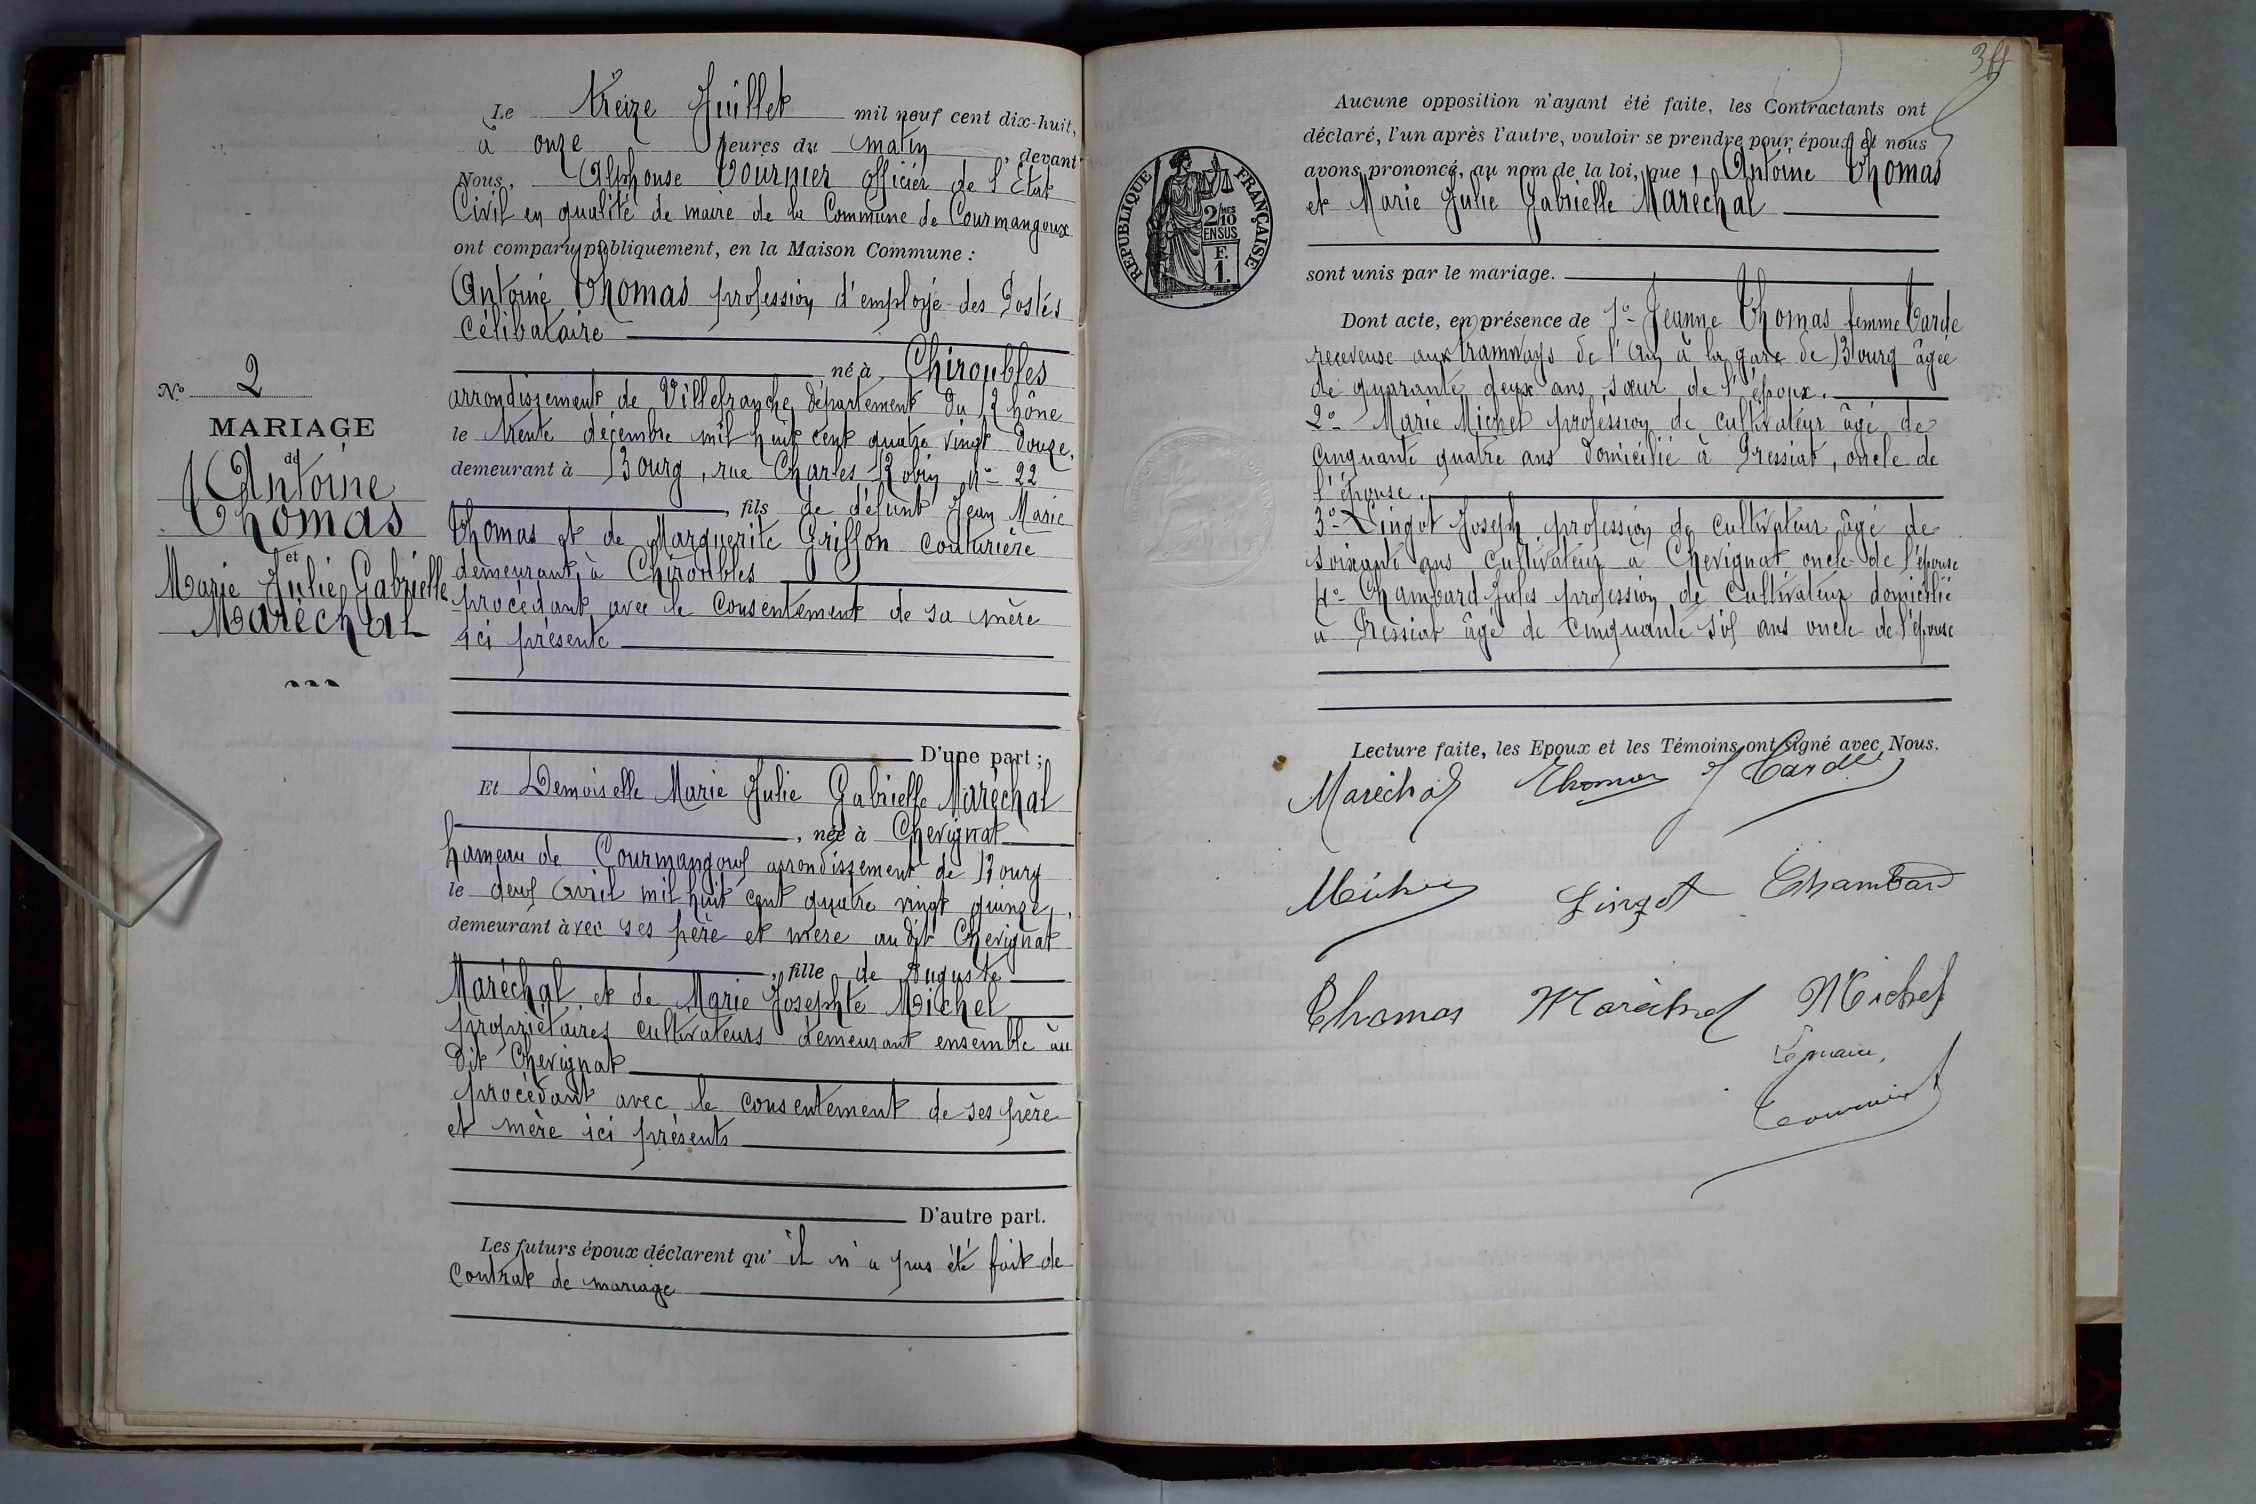 Le Treize Juillet mil neuf cent dix-huit,
à onze heures du matin, devant
Nous, Alphonse Tournier officier de l'Etat
Civil en qualité de maire de la Commune de Courmangoux
ont comparu publiquement, en la Maison Commune :
Antoine Thomas profession d'employé des Postes
Célibataire
né à Chiroubles
arrondissement de Villefranche, département du Rhône
le trente décembre mil huit cent quatre vingt douze,
demeurant à Bourg, rue Charles Robin n° 22
, fils de défunt Jean Marie
Thomas et de Marguerite Griffon couturière
demeurant à Chiroubles
procédant avec le consentement de sa mère
ici présente
N° 2
MARIAGE
de
Antoine
Thomas
et
Marie Julie Gabrielle
Maréchal
D'une part ;
Et Demoiselle Marie Julie Gabrielle Maréchal
, née à Chevignat
hameau de Courmangoux arrondissement de Bourg
le deux Avril mil huit cent quatre vingt quinze,
demeurant avec ses père et mère au dit Chevignat
, fille de Auguste
Maréchal et de Marie Josephte Michel
propriétaires cultivateurs demeurant ensemble au
dit Chevignat
procédant avec le consentement de ses père
et mère ici présents
D'autre part.
Les futurs époux déclarent qu'il n'a pas été fait de
Contrat de mariage
Aucune opposition n'ayant été faite, les Contractants ont
déclaré, l'un après l'autre, vouloir se prendre pour époux et nous
avons prononcé, au nom de la loi, que Antoine Thomas
et Marie Julie Gabrielle Maréchal
sont unis par le mariage.
REPUBLIQUE FRANÇAISE
2/10 MES
EN SUS
F.
1.
Dont acte, en présence de 1°- Jeanne Thomas femme Tarde
receveuse aux tramways de l'Ain à la gare de Bourg âgée
de quarante deux ans, sœur de l'époux.
2°- Marie Michel profession de cultivateur âgé de
cinquante quatre ans domicilié à Pressiat, oncle de
l'épouse.
3°- Lingot Joseph profession de cultivateur âgé de
soixante ans cultivateur à Chevignat oncle de l'épouse
4°- Chambard Jules profession de cultivateur domicilié
à Pressiat âgé de cinquante six ans oncle de l'épouse
Lecture faite, les Epoux et les Témoins ont signé avec Nous.
Maréchal Thomas J Tarde
Michel Lingot Chambard
Thomas Maréchal Michel
Le maire,
Tournier